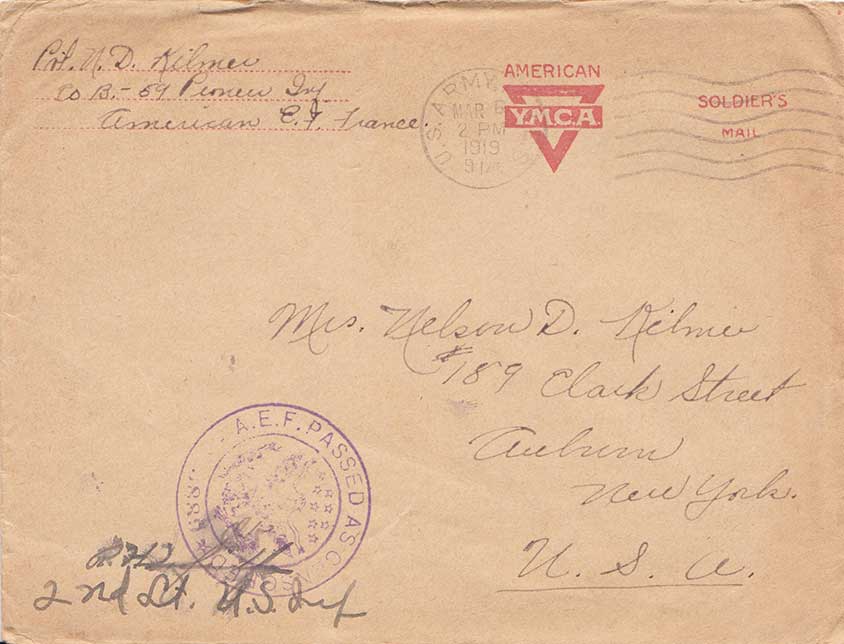 Pvt. N. D. Kilmer
Co B.- 59 Pioneer Inf
American E.F. France.
U.S. ARMY
MAR 6
2 PM
1919
AMERICAN
Y.M.C.A.
SOLDIER'S
MAIL
Mrs. Nelson D. Kilmer
#189 Clark Street
Auburn
New York.
U. S. A.
A.E.F. PASSED AS CENSORED
2nd Lt. U.S. Inf